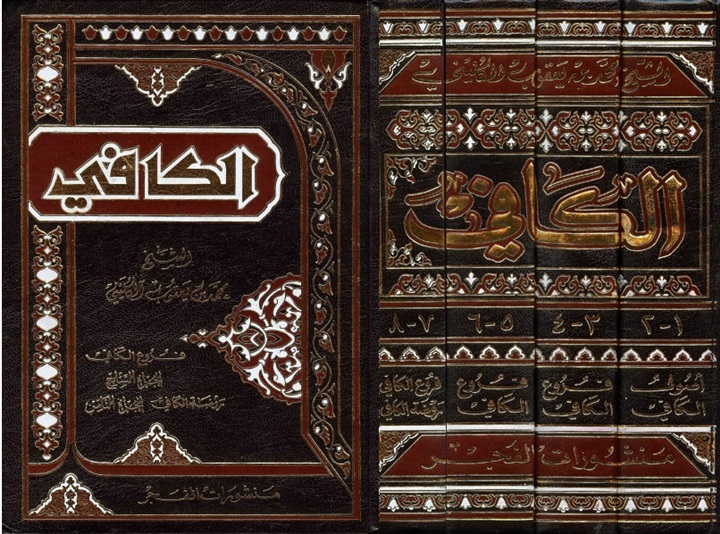 الكافي
الشيخ
محمد بن يعقوب الكليني
فروع الكافي
الجزء السابع
روضة الكافي الجزء الثامن
منشورات الفجر
الشيخ محمد بن يعقوب الكليني
الكافي
١-٢
٣-٤
٥-٦
٧-٨
أصول الكافي
فروع الكافي
فروع الكافي
فروع الكافي
روضة الكافي
منشورات الفجر